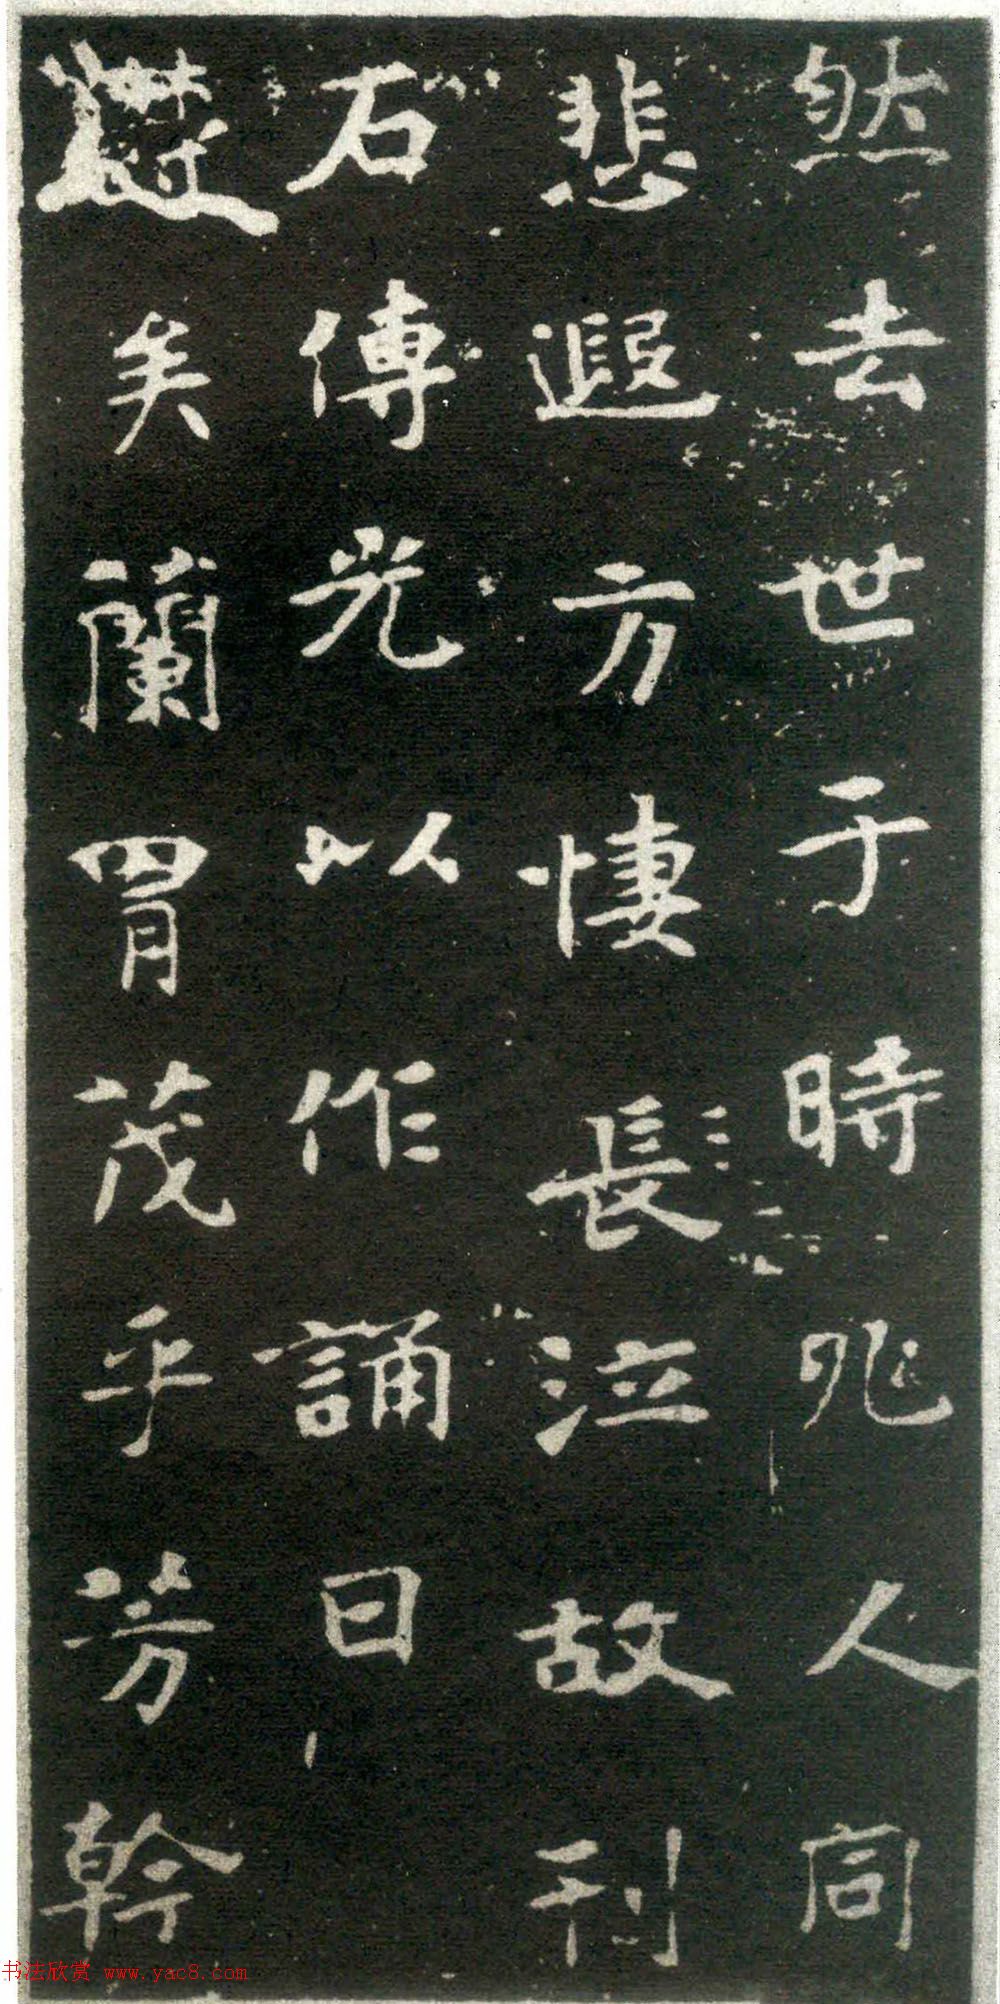 然去世于時兆人同
悲遐方悽長泣故刊
石傳光以作誦曰
邈矣蘭胄茂乎芳幹
书法欣赏 www.yac8.com